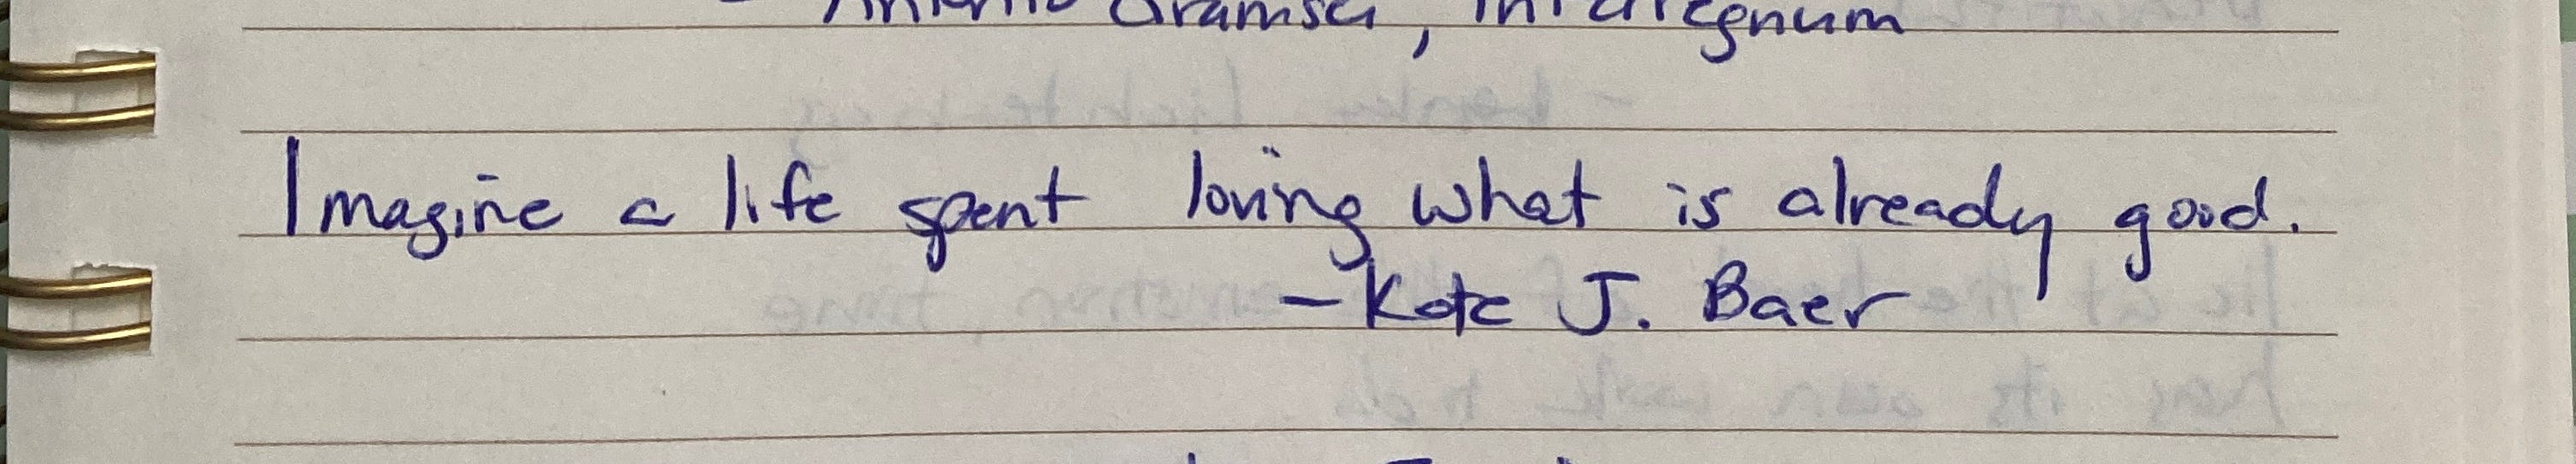 - Antonio Gramsci, Interregnum
Imagine a life spent loving what is already good.
- Kate J. Baer